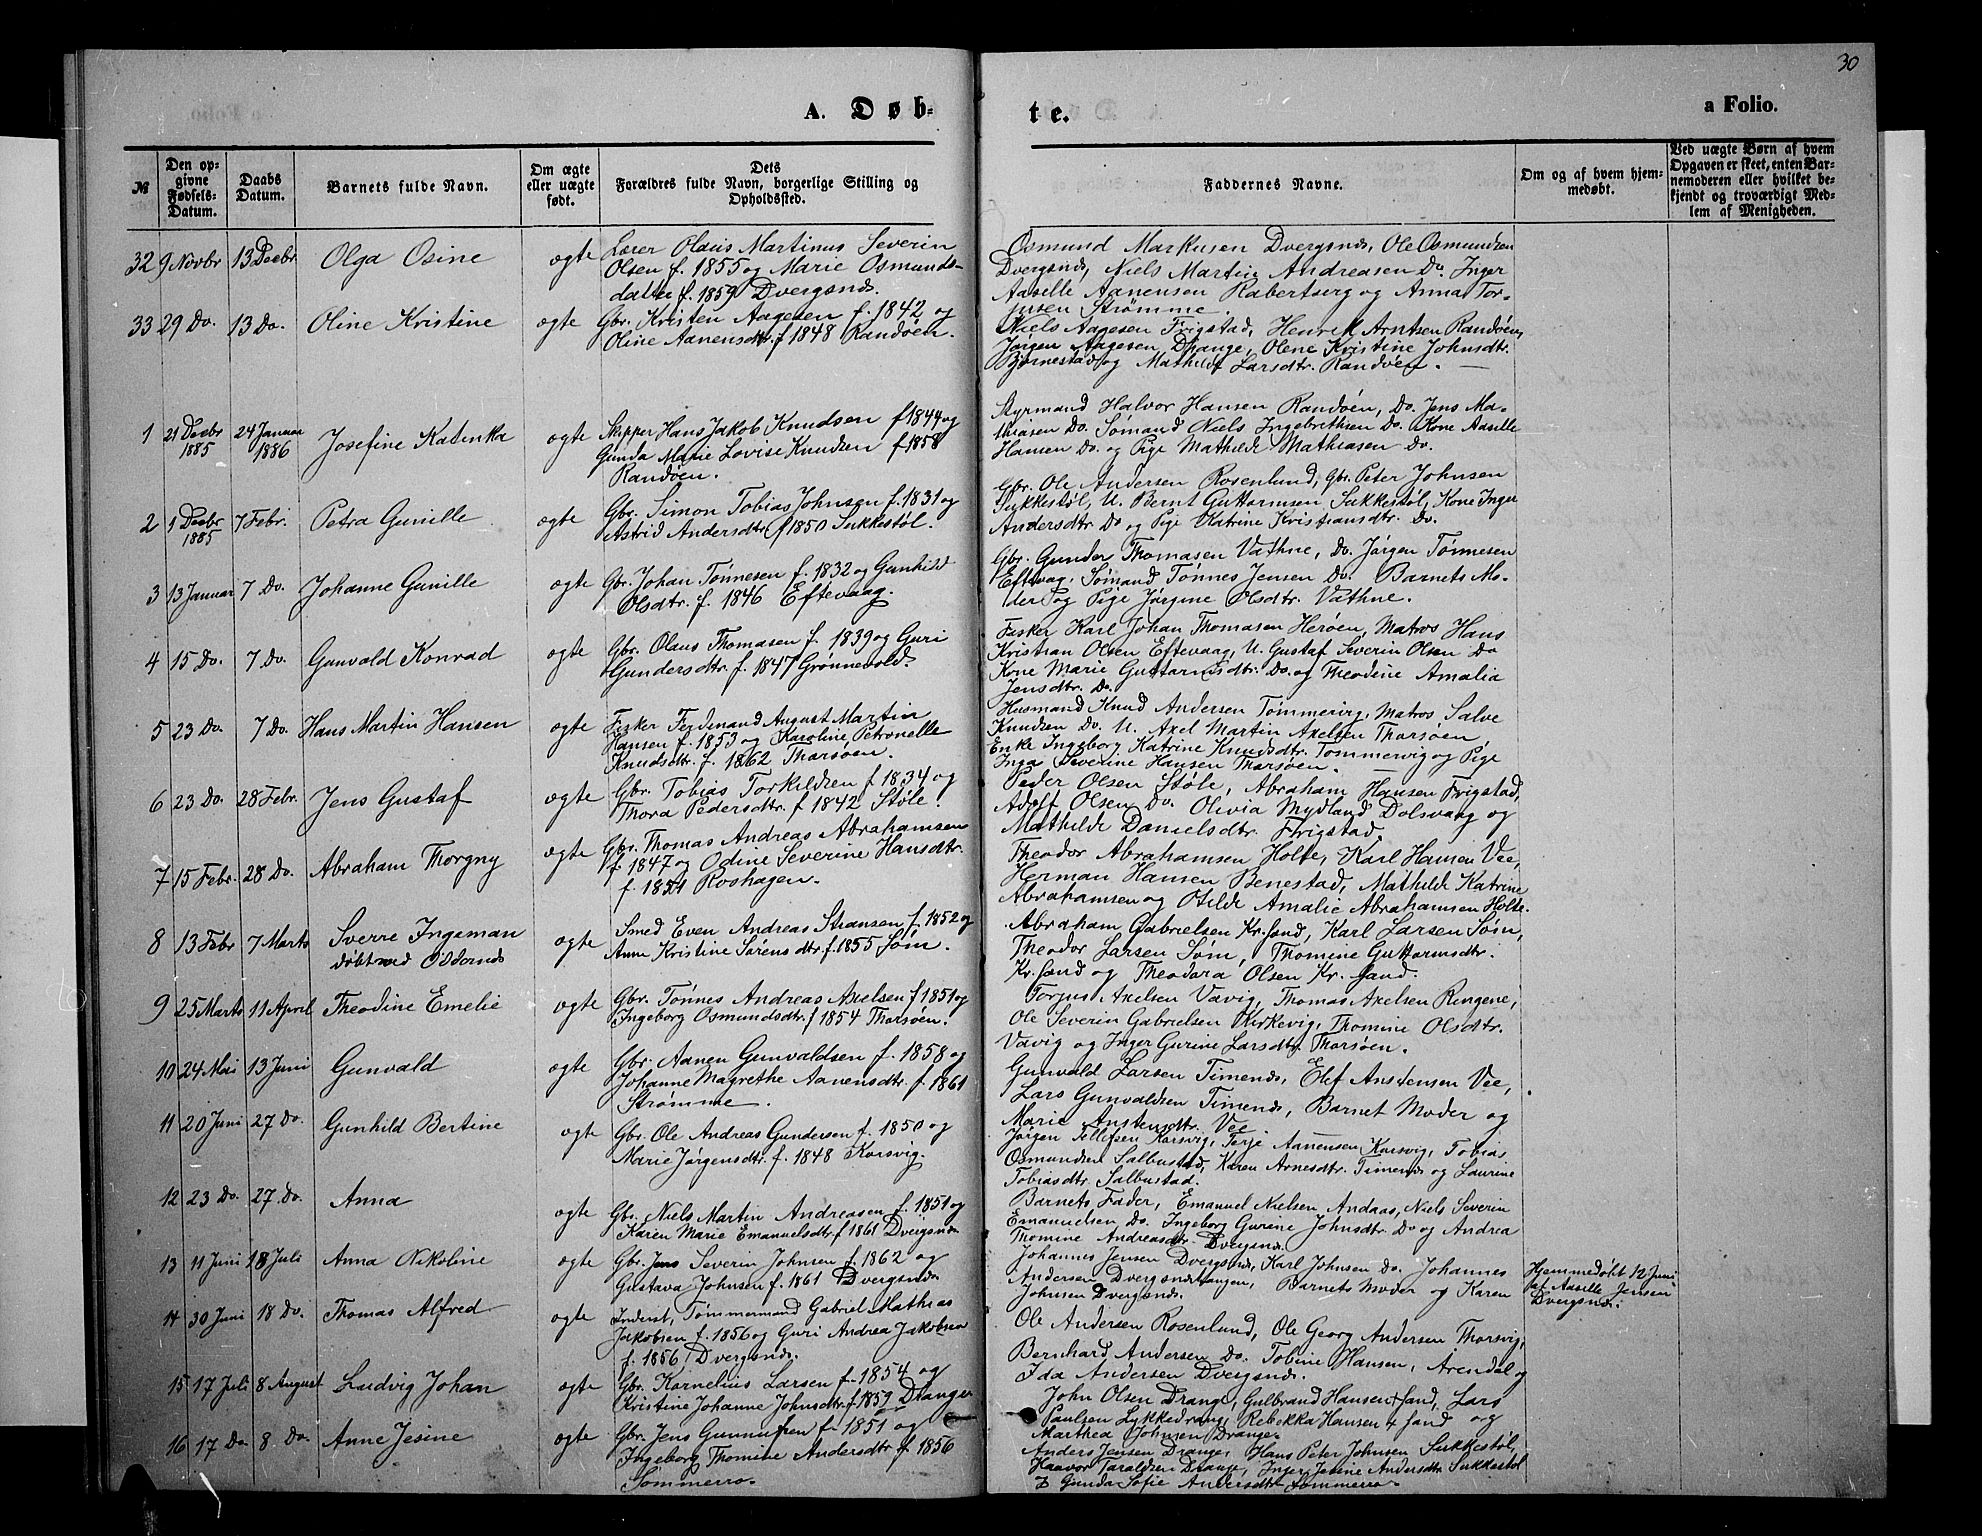 30
A. Døb-
te.
a Folio.
№
Den op-
givne
Fødsels-
Datum.
Daabs
Datum.
Barnets fulde Navn.
Om ægte
eller uægte
født.
Dets
Forældres fulde Navn, borgerlige Stilling og
Opholdssted.
Faddernes Navne.
Om og af hvem hjem-
medøbt.
Ved uægte Børn af hvem
Opgaven er skeet, enten Bar-
nemoderen eller hvilket be-
kjendt og troværdigt Med-
lem af Menigheden.
32 9 Novbr 13 Decbr Olga Osine ogte
Lærer Olaus Martinus Severin
Olsen f. 1855 og Marie Osmunds-
datter f. 1859 Dvergsnds.
Osmund Markusen Dvergsnds, Ole Osmundsen
Dvergsnds, Niels Martin Andreasen Do. Inger
Aaselle Aanensen og Anna Tor-
Strømme.
33 29 Do. 13 Do. Oline Kristine ogte
Gbr. Kristen Aagesen f. 1842 og
Oline Aanensdtr. f 1848 Randøen.
Niels Aagesen Frigstad, Henrik Arntsen Randøen,
Jørgen Aagesen Drange, Olene Kristine Johnsdtr.
Bjørnestad og Mathilde Larsdtr. Randøen.
1 21 Decbr 1885 24 Januar 1886 Josefine Katinka ogte
Skipper Hans Jakob Knudsen f 1844 og
Gunda Marie Lovise Knudsen f 1858
Randøen.
Styrmand Halvor Hansen Randøen, Do. Jens Ma-
thiasen Do. Sømand Niels Ingebrethsen Do. Kone Aaselle
Hansen Do. og Pige Mathilde Mathiasen Do.
2 1 Decbr 1885 7 Febr. Petra Gunille ogte
Gbr. Simon Tobias Johnsen f. 1831 og
Astrid Andersdtr. f 1850 Sukkestøl.
Gbr. Ole Andersen Rosenlund, Gbr. Peter Johnsen
Sukkestøl, U. Bernt Guttormsen Sukkestøl, Kone Inger
Andersdtr Do og Pige Katrine Kristiansdtr. Do.
3 13 Januar 7 Do. Johanne Gunille ogte
Gbr. Johan Tønnesen f. 1832 og Gunhild
Olsdtr. f. 1846 Eftevaag.
Gbr. Gunder Thomasen Vathne, Do. Jørgen Tønnesen
Eftevaag, Sømand Tønnes Jensen Do. Barnets Mo-
der og Pige Jørgine Olsdtr. Vathne.
4 15 Do. 7 Do. Gunvald Konrad ogte
Gbr. Olaus Thomasen f. 1839 og Guri
Gundersdtr. f. 1847 Grønnevold.
Fisker Karl Johan Thomasen Herøen, Matros Hans
Kristian Olsen Eftevaag, U. Gustaf Severin Olsen Do
Kone Marie Guttormsdtr. Do. og Theodine Amalia
Jensdtr. Do.
5 23 Do. 7 Do. Hans Martin Hansen ogte
Fisker Ferdinand August Martin
Hansen f. 1853 og Karoline Petronelle
Knudsdtr. f. 1862 Tharsøen.
Husmand Knud Andersen Tømmervig, Matros Salve
Knudsen Do. U. Axel Martin Axelsen Tharsøen
Enke Ingeborg Katrine Knudsdtr. Tømmervig og Pige
Inga Severine Hansen Tharsøen.
6 23 Do. 28 Febr. Jens Gustaf ogte
Gbr. Tobias Torkildsen f 1834 og
Thora Pedersdtr. f 1842 Støle.
Peder Olsen Støle, Abraham Hansen Frigstad,
Adolf Olsen Do. Olivia Mydland Dolsvaag og
Mathilde Danielsdtr. Frigstad.
7 15 Febr. 28 Do. Abraham Thorgny ogte
Gbr. Thomas Andreas Abrahamsen
f 1847 og Odine Severine Hansdtr.
f. 1851 Roshagen.
Theodor Abrahamsen Holte, Karl Hansen Vee,
Herman Hansen Benestad, Mathilde Katrine
Abrahamsen og Otilde Amalie Abrahamsen Holte.
8 13 Febr 7 Marts Sverre Ingeman
døbt ved Oddernds ogte
Smed Even Andreas f. 1852 og
Anne Kristine Sørensdtr. f. 1855 Søm.
Abraham Gabrielsen Kr.sand, Karl Larsen Søm,
Theodor Larsen Søm, Thomine Guttormsdtr.
Kr. sand og Theodora Olsen Kr. sand.
9 25 Marts 11 April Theodine Emelie ogte
Gbr. Tønnes Andreas Axelsen f 1851 og
Ingeborg Osmundsdtr. f 1854 Tharsøen.
Torjus Axelsen Vavig, Thomas Axelsen Ringene,
Ole Severin Gabrielsen Kirkevig, Thomine Olsdtr.
Vavig og Inger Gurine Larsdtr. Tharsøen.
10 24 Mai 13 Juni Gunvald ogte
Gbr. Aanen Gunvaldsen f. 1858 og
Johanne Magrethe Aanensdtr. f. 1861
Strømme.
Gunvald Larsen Timends, Elef Anstensen Vee,
Lars Gunvaldsen Timends, Barnet Moder og
Marie Anstensdtr. Vee
11 20 Juni 27 Do. Gunhild Bertine ogte
Gbr. Ole Andreas Gundersen f. 1850 og
Marie Jørgensdtr. f. 1848 Korsvig.
Jørgen Tellefsen Korsvig, Terje Aanensen Korsvig, Tobias
Osmundsen Salbustad, Karen Arnesdtr. Timends og Laurine
Tobiasdtr. Salbustad.
12 23 Do. 27 Do. Anna ogte
Gbr. Niels Martin Andreasen f. 1851 og
Karen Marie Emanuelsdtr f 1861 Dvergsnds
Barnets Fader, Emanuel Nielsen Andaas, Niels Severin
Emanuelsen Do. Ingeborg Gurine Johnsdtr Do og Andrea
Thomine Andreasdtr. Dvergsnds.
13 11 Juni 18 Juli Anna Nikoline ogte
Gbr. Jens Severin Johnsen f. 1862 og
Gustava Johnsen f. 1861 Dvergsnds
Johannes Jensen Dvergsnds, Karl Johnsen Do. Johannes
Andersen Dvergsndstangen, Barnets Moder og Karen
Johnsen Dvergsnds.
Hjemmedøbt 12 Juni
af Aaselle Jensen
Dvergsnds.
14 30 Juni 18 Do. Thomas Alfred ogte
Inderst, Tømmermand Gabriel Mathias
Jakobsen f. 1856 og Guri Andrea Jakobsen
f. 1856 Dvergsnds.
Ole Andersen Rosenlund, Ole Georg Andersen Thorsvig,
Bernhard Andersen Do. Tobine Hansen, Arendal og
Ida Andersen Dvergsnds.
15 17 Juli 8 August Ludvig Johan ogte
Gbr. Kornelius Larsen f. 1854 og
Kristine Johanne Johnsdtr. f. 1859 Drange
John Olsen Drange, Gulbrand Hansen sand, Lars
Paulsen Lykkedrang, Rebekka Hansen sand og
Marthea Johnsen Drange.
16 17 Do 8 Do. Anne Jesine ogte
Gbr. Jens f. 1851 og
Ingeborg Thomine Andersdtr. f. 1856
Sommerro.
Anders Jensen Drange, Hans Peter Johnsen Sukkestøl,
Haavor Taraldsen Drange, Inger Jesine Andersdtr Sukkestøl
Gunda Sofie Andersdtr. Sommerro.